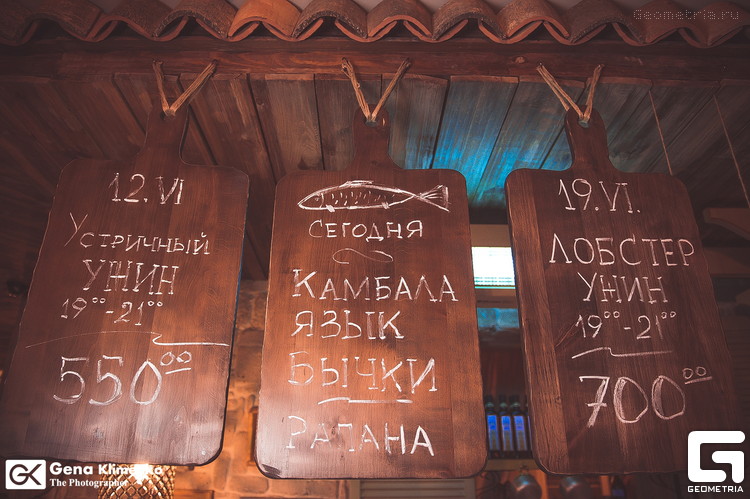 Geometria.ru
12.VI
Устричный
УНИН
19°° -21°°
550 00
СЕГОДНЯ
КАМБАЛА
ЯЗЫК
БЫЧКИ
РАПАНА
19.VI.
ЛОБСТЕР
УНИН
19°° -21°°
700 00
GK Gena Klimenko
The Photographer
GEOMETRIA